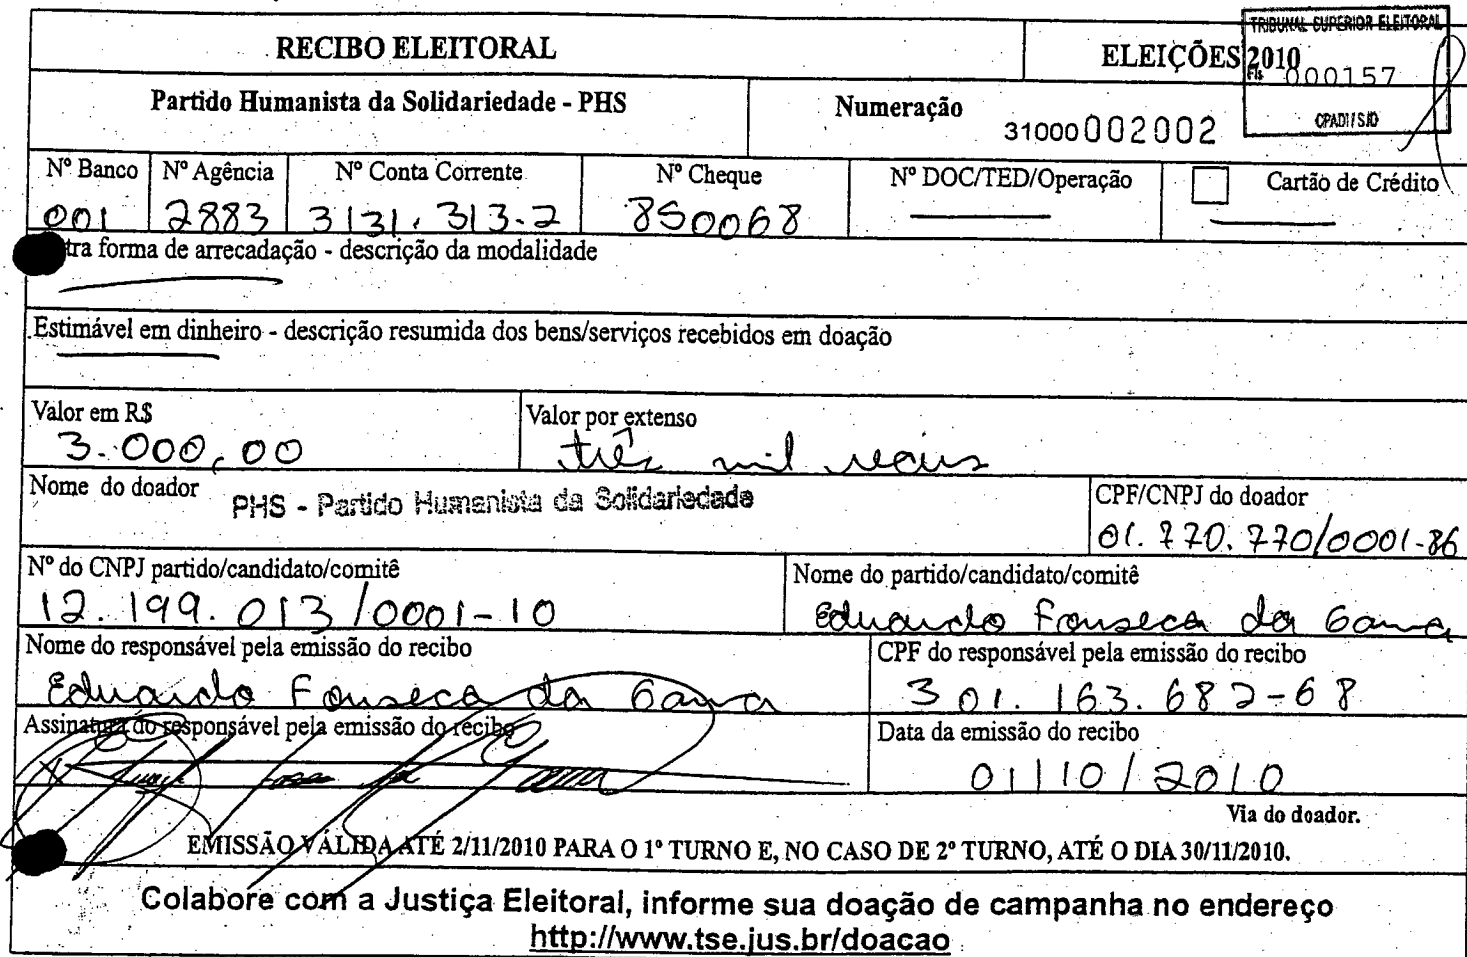 TRIBUNAL SUPERIOR ELEITORAL
RECIBO ELEITORAL
ELEIÇÕES 2010
Fls 000157
CPADI/SJD
Partido Humanista da Solidariedade - PHS
Numeração
31000 002002
Nº Banco Nº Agência Nº Conta Corrente Nº Cheque Nº DOC/TED/Operação Cartão de Crédito
001 2883 3131.313-2 850068
tra forma de arrecadação - descrição da modalidade
Estimável em dinheiro - descrição resumida dos bens/serviços recebidos em doação
Valor em R$ Valor por extenso
3.000,00 três mil reais
Nome do doador PHS - Partido Humanista da Solidariedade CPF/CNPJ do doador
01.770.770/0001-86
Nº do CNPJ partido/candidato/comitê Nome do partido/candidato/comitê
12.199.013/0001-10 Eduardo Fonseca da Gama
Nome do responsável pela emissão do recibo CPF do responsável pela emissão do recibo
Eduardo Fonseca da Gama 301.163.682-68
Assinatura do responsável pela emissão do recibo Data da emissão do recibo
01/10/2010
Via do doador.
EMISSÃO VÁLIDA ATÉ 2/11/2010 PARA O 1º TURNO E, NO CASO DE 2º TURNO, ATÉ O DIA 30/11/2010.
Colabore com a Justiça Eleitoral, informe sua doação de campanha no endereço
http://www.tse.jus.br/doacao